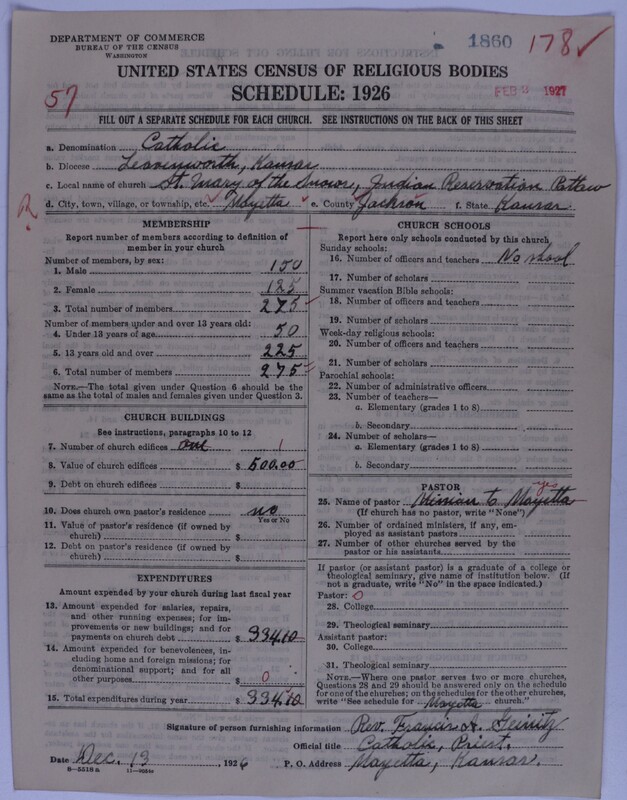 DEPARTMENT OF COMMERCE
BUREAU OF THE CENSUS
WASHINGTON
1860 178 ✓
UNITED STATES CENSUS OF RELIGIOUS BODIES
57
SCHEDULE: 1926
FEB 1927
FILL OUT A SEPARATE SCHEDULE FOR EACH CHURCH. SEE INSTRUCTIONS ON THE BACK OF THIS SHEET
a. Denomination Catholic
b. Diocese Leavenworth, Kansas
c. Local name of church St. Mary of the Snows, Indian Reservation
R
d. City, town, village, or township, etc. Mayetta e. County Jackson f. State Kansas
MEMBERSHIP
Report number of members according to definition of
member in your church
Number of members, by sex:
1. Male 150
2. Female 125
3. Total number of members 275
Number of members under and over 13 years old:
4. Under 13 years of age 50
5. 13 years old and over 225
6. Total number of members 275
NOTE.—The total given under Question 6 should be
same as the total of males and females given under Question 3.
CHURCH BUILDINGS
See instructions, paragraphs 10 to 12
7. Number of church edifices one 1
8. Value of church edifices $ 500.00
9. Debt on church edifices $
10. Does church own pastor's residence no
Yes or No
11. Value of pastor's residence (if owned by
church) $
12. Debt on pastor's residence (if owned by
church) $
EXPENDITURES
Amount expended by your church during last fiscal year
13. Amount expended for salaries, repairs,
and other running expenses; for im-
provements or new buildings; and for
payments on church debt $ 334.10
14. Amount expended for benevolences, in-
cluding home and foreign missions; for
denominational support; and for all
other purposes $ 0
15. Total expenditures during year $ 334.10
CHURCH SCHOOLS
Report here only schools conducted by this church
Sunday schools:
16. Number of officers and teachers No school
17. Number of scholars
Summer vacation Bible schools:
18. Number of officers and teachers
19. Number of scholars
Week-day religious schools:
20. Number of officers and teachers
21. Number of scholars
Parochial schools:
22. Number of administrative officers
23. Number of teachers—
a. Elementary (grades 1 to 8)
b. Secondary
24. Number of scholars—
a. Elementary (grades 1 to 8)
b. Secondary
PASTOR
yes
25. Name of pastor Mission to Mayetta
(If church has no pastor, write "None")
26. Number of ordained ministers, if any, em-
ployed as assistant pastors
27. Number of other churches served by the
pastor or his assistants
If pastor (or assistant pastor) is a graduate of a college or
theological seminary, give name of institution below. (If
not a graduate, write "No" in the space indicated.)
Pastor: 0
28. College
29. Theological seminary
Assistant pastor:
30. College
31. Theological seminary
NOTE.—Where one pastor serves two or more churches,
Questions 28 and 29 should be answered only on the schedule
for one of the churches; on the schedules for the other churches,
write "See schedule for Mayetta church."
Signature of person furnishing information Rev. Francis A. Geinitz
Official title Catholic, Priest.
Date Dec. 13, 1926 P. O. Address Mayetta, Kansas.